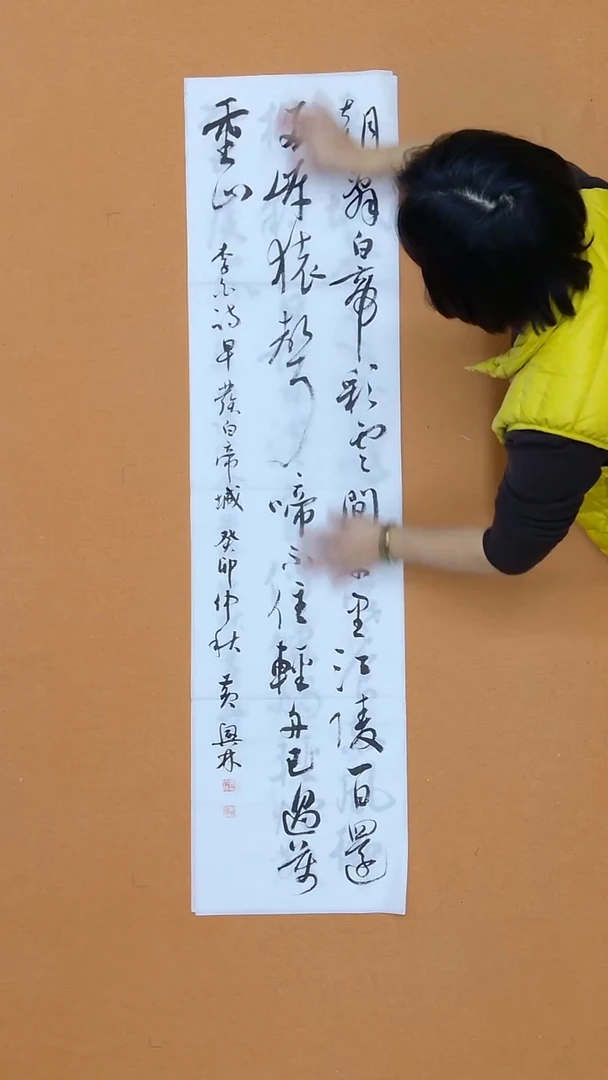 朝辭白帝彩雲間里江陵一日還
兩岸猿聲啼不住輕舟已過萬
重山
李白詩早發白帝城 癸卯仲秋 黃興林